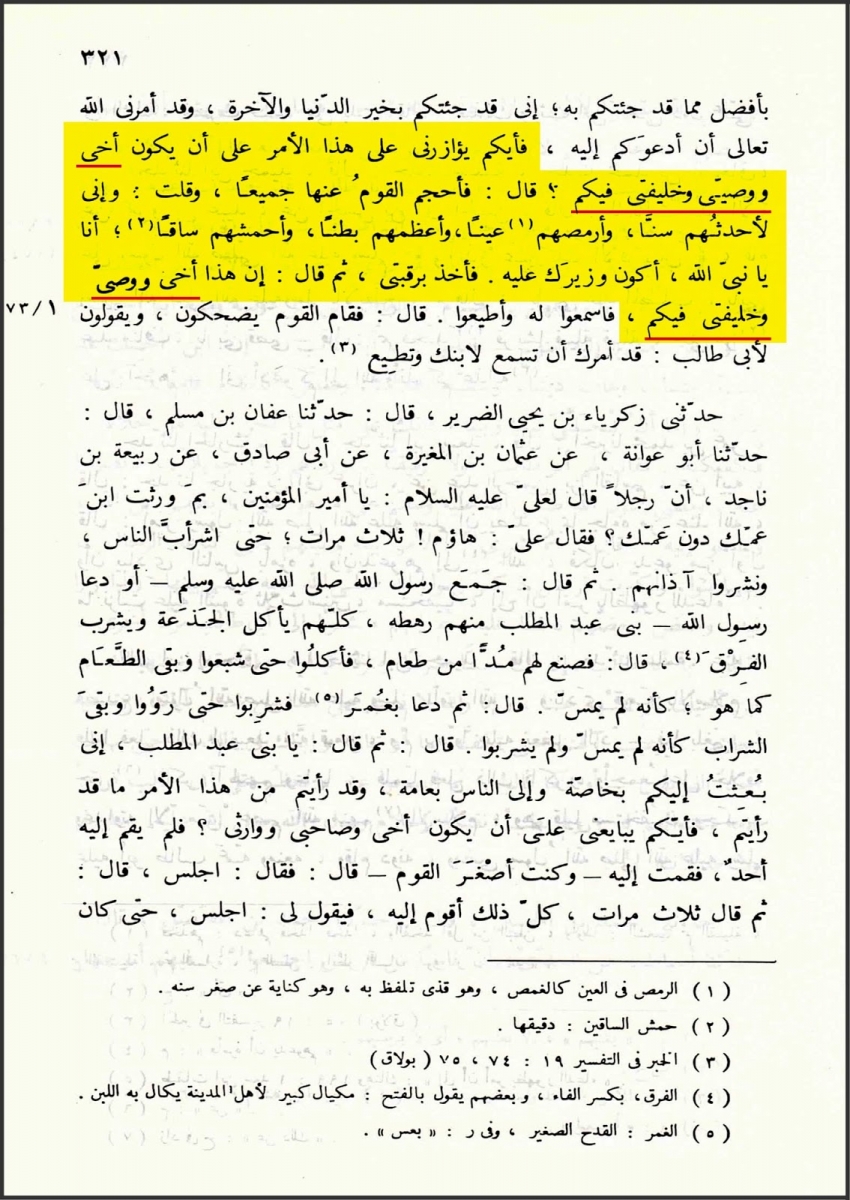 ٣٢١
بأفضل مما قد جئتكم به؛ إنى قد جئتكم بخير الدّنيا والآخرة ، وقد أمرنى الله
تعالى أن أدعوَكم إليه ، فأيكم يؤازرنى على هذا الأمر على أن يكون أخى
ووصيّى وخليفتى فيكم ؟ قال : فأحجم القومُ عنها جميعًا ، وقلت : وإنى
لأحدثُهم سنًّا، وأرمصهم (١) عينًا، وأعظمهم بطنًا، وأحمشهم ساقًا(٢) ؛ أنا
يا نبىّ الله ، أكون وزيرَك عليه . فأخذ برقبتى ، ثم قال : إن هذا أخى ووصىّ
١/ ٧٣
وخليفتى فيكم ، فاسمعوا له وأطيعوا . قال : فقام القوم يضحكون ، ويقولون
لأبى طالب : قد أمرك أن تسمع لابنك وتطيع (٣) .
حدّثنى زكرياء بن يحيى الضرير ، قال : حدّثنا عفان بن مسلم ، قال :
حدّثنا أبو عوانة ، عن عثمان بن المغيرة ، عن أبى صادق ، عن ربيعة بن
ناجد ، أنّ رجلاً قال لعلىّ عليه السلام : يا أمير المؤمنين ، بم ورثت ابنَ
عمّك دون عَمّك؟ فقال علىّ : هاؤم ! ثلاث مرات ؛ حتى اشرأبَّ الناس ،
ونشروا آذانهم . ثم قال : جَمَع رسول الله صلى الله عليه وسلم – أو دعا
رسول الله – بنى عبد المطلب منهم رهطه ، كلّهم يأكل الجَذَعة ويشرب
الفِرْقَ(٤) ، قال : فصنع لهم مُدًّا من طعام ، فأكلُوا حتى شبعوا وبقى الطَّعَام
كما هو ؛ كأنه لم يمسّ . قال: ثم دعا بغُمَر(٥) فشربوا حتّى رَوُوا وبقىَ
الشراب كأنه لم يمسّ ولم يشربوا . قال : ثم قال : يا بنى عبد المطلب ، إنى
بُعِثتُ إليكم بخاصّة وإلى الناس بعامة ، وقد رأيتم من هذا الأمر ما قد
رأيتم ، فأيّكم يبايعنى علَى أن يكون أخى وصاحبى ووارثى ؟ فلم يقم إليه
أحدٌ، فقمت إليه – وكنت أصْغَرَ القوم – قال : فقال : اجلس ، قال :
ثم قال ثلاث مرات ، كلّ ذلك أقوم إليه ، فيقول لى : اجلس ، حتى كان
( ١ ) الرمص فى العين كالغمص ، وهو قذى تلفظ به ، وهو كناية عن صغر سنه .
( ٢ ) حمش الساقين : دقيقها .
( ٣ ) الخبر فى التفسير ١٩ : ٧٤ ، ٧٥ ( بولاق)
( ٤ ) الفرق، بكسر الفاء ، وبعضهم يقول بالفتح : مكيال كبير لأهل المدينة يكال به اللبن .
( ٥ ) الغمر : القدح الصغير ، وفى ر : « بعس » .